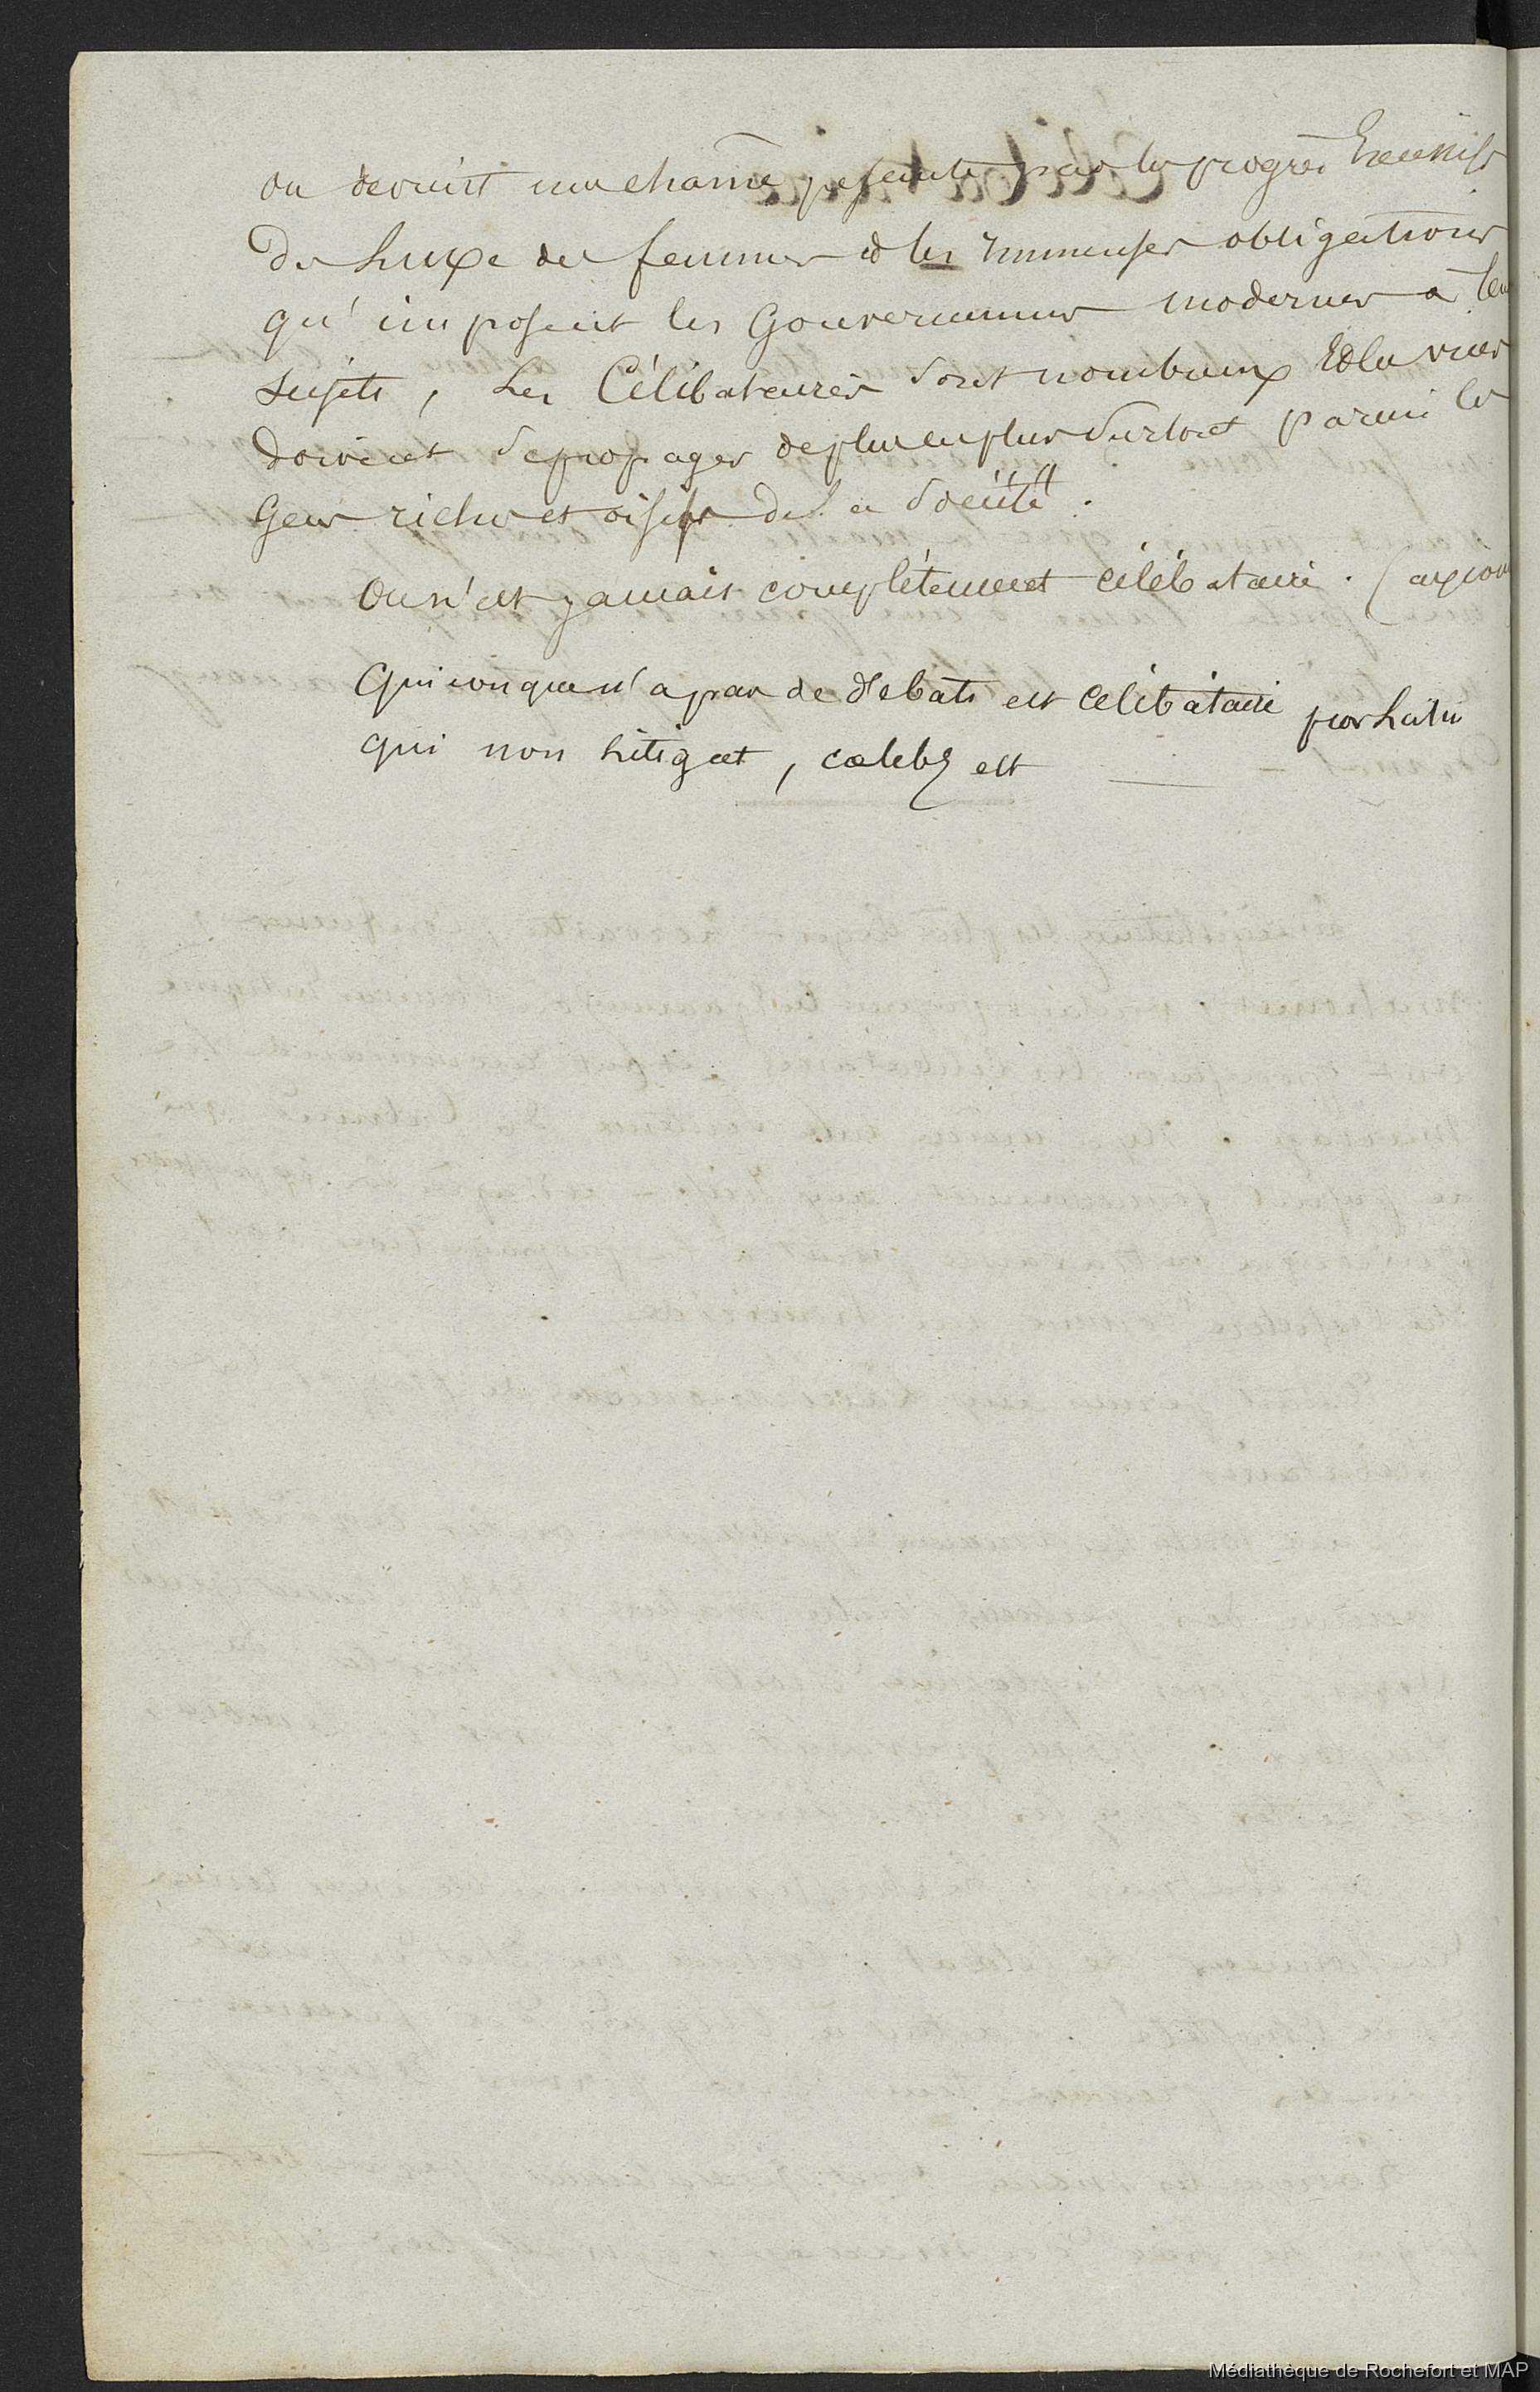 ou devint une chaine pesante par les progrès Excessifs
du Luxe des femmes et les immenses obligations
qu'imposent les Gouvernemens modernes à leur
sujets, Les Célibataires sont nombreux Et les vices
doivent se propager de plus en plus Surtout parmi les
Gens riches et oisifs de la Société".
On n'est jamais complétement célébataire. (axiom
Quiconque n'a pas de débats est célibataire
qui non Litigat, cœlebs est
Médiathèque de Rochefort et MAP